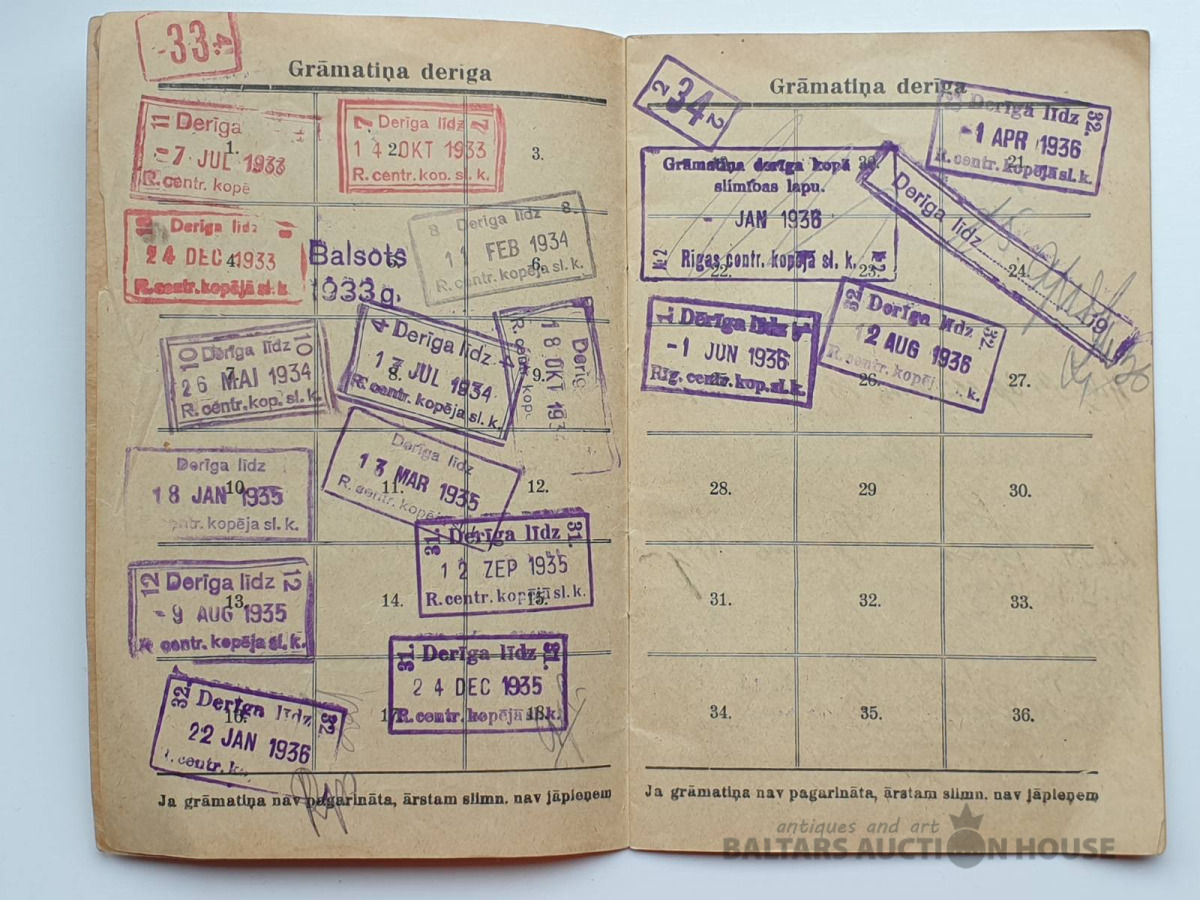 -33 4.
Grāmatiņa derīga
11 Derīga
1.
-7 JUL 1933
R. centr. kopē
7 Derīga līdz 7
2.
14 OKT 1933
R. centr. kop. sl. k.
3.
Derīga līdz
24 DEC 1933
4.
R. centr. kopējā sl. k.
Balsots
5.
1933 g.
8 Derīga līdz 8.
11 FEB 1934
6.
R. centr. kopēja sl. k.
10 Derīga līdz 10
7.
26 MAI 1934
R. centr. kop. sl. k.
4 Derīga līdz 4
13 JUL 1934
8.
R. centr. kopēja sl. k.
Derīg
9.
18 OKT 193
R. centr. kop.
Derīga līdz
10.
18 JAN 1935
centr. kopēja sl. k.
Derīga līdz
11.
13 MAR 1935
R. centr. kopēja
12.
12 Derīga līdz 12
13.
-9 AUG 1935
centr. kopēja sl. k.
14.
31. Derīga līdz 31.
12 ZEP 1935
R. centr. kopējā sl. k.
15.
32. Derīga līdz 32
16.
22 JAN 1936
centr. ko
17.
31. Derīga līdz 31.
24 DEC 1935
R. centr. kopējā sl. k.
18.
Ja grāmatiņa nav pagarināta, ārstam slimn. nav jāpieņem
2 34 2
Grāmatiņa derīga
Grāmatiņa derīga kopā ar
20.
slimības lapu.
- JAN 1936
№2 Rīgas centr. kopējā sl. k. №2
22.
23.
Derīga līdz 32.
-1 APR 1936
21.
R. centr. kopējā sl. k.
Derīga līdz
19
24.
1. Derīga līdz 1.
-1 JUN 1936
Rīg. centr. kop. sl. k.
25.
32 Derīga līdz 32.
12 AUG 1936
R. centr. kopēj k.
26.
27.
28.
29
30.
31.
32.
33.
34.
35.
36.
Ja grāmatiņa nav pagarināta, ārstam slimn. nav jāpieņem
antiques and art
BALTARS AUCTION HOUSE